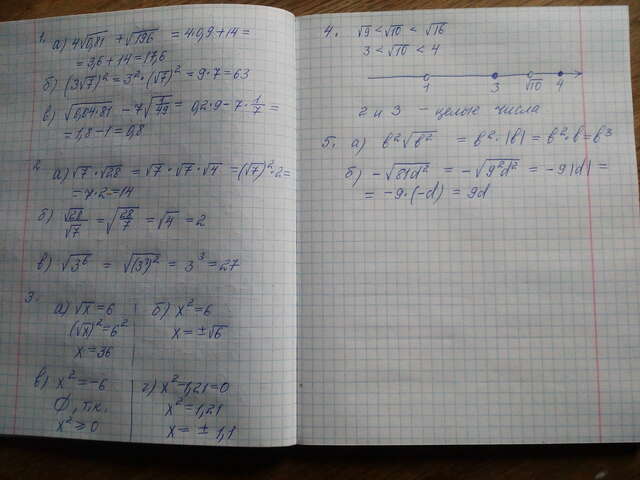 1. а) 4√0,81 + √196 = 4·0,9+14 =
= 3,6 + 14 = 17,6
б) (3√7)² = 3²·(√7)² = 9·7 = 63
в) √0,04·81 − 7√1/49 = 0,2·9 − 7·1/7 =
= 1,8 − 1 = 0,8
2. а) √7 · √28 = √7 · √7 · √4 = (√7)²·2 =
= 7·2 = 14
б) √28/√7 = √28/7 = √4 = 2
в) √3⁶ = √(3³)² = 3³ = 27
3. а) √x = 6
(√x)² = 6²
x = 36
б) x² = 6
x = ±√6
в) x² = −6
Ø, т.к.
x² ≥ 0
г) x² − 1,21 = 0
x² = 1,21
x = ± 1,1
4. √9 < √10 < √16
3 < √10 < 4
1 3 √10 4
2 и 3 – целые числа
5. а) b²√b² = b²·|b| = b²·b = b³
б) −√81d² = −√9²d² = −9|d| =
= −9·(−d) = 9d